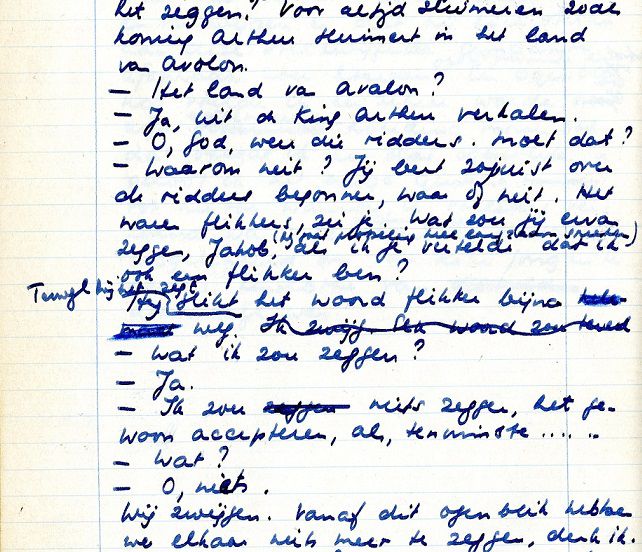 het zeggen? Voor altijd sluimeren zoals
koning Arthur sluimert in het land
van Avalon.
– Het land van Avalon?
– Ja, uit de King Arthur verhalen.
– O, God, weer die ridders. Moet dat?
– Waarom niet? Jij bent zojuist over
de ridders begonnen, waar of niet. Het
waren flikkers, zei je. Wat zou jij ervan
zeggen, Jakob, als ik je vertelde dat ik
ook een flikker ben?
Terwijl hij het zegt
Hij slikt het woord flikker bijna
weg. Ik zwijg. Elk woord zou teveel
– Wat ik zou zeggen?
– Ja.
– Ik zou zeggen niets zeggen, het ge-
woon accepteren, als, tenminste .....
– Wat?
– O, niets.
Wij zwijgen. Vanaf dit ogenblik hebben
we elkaar niets meer te zeggen, denk ik.